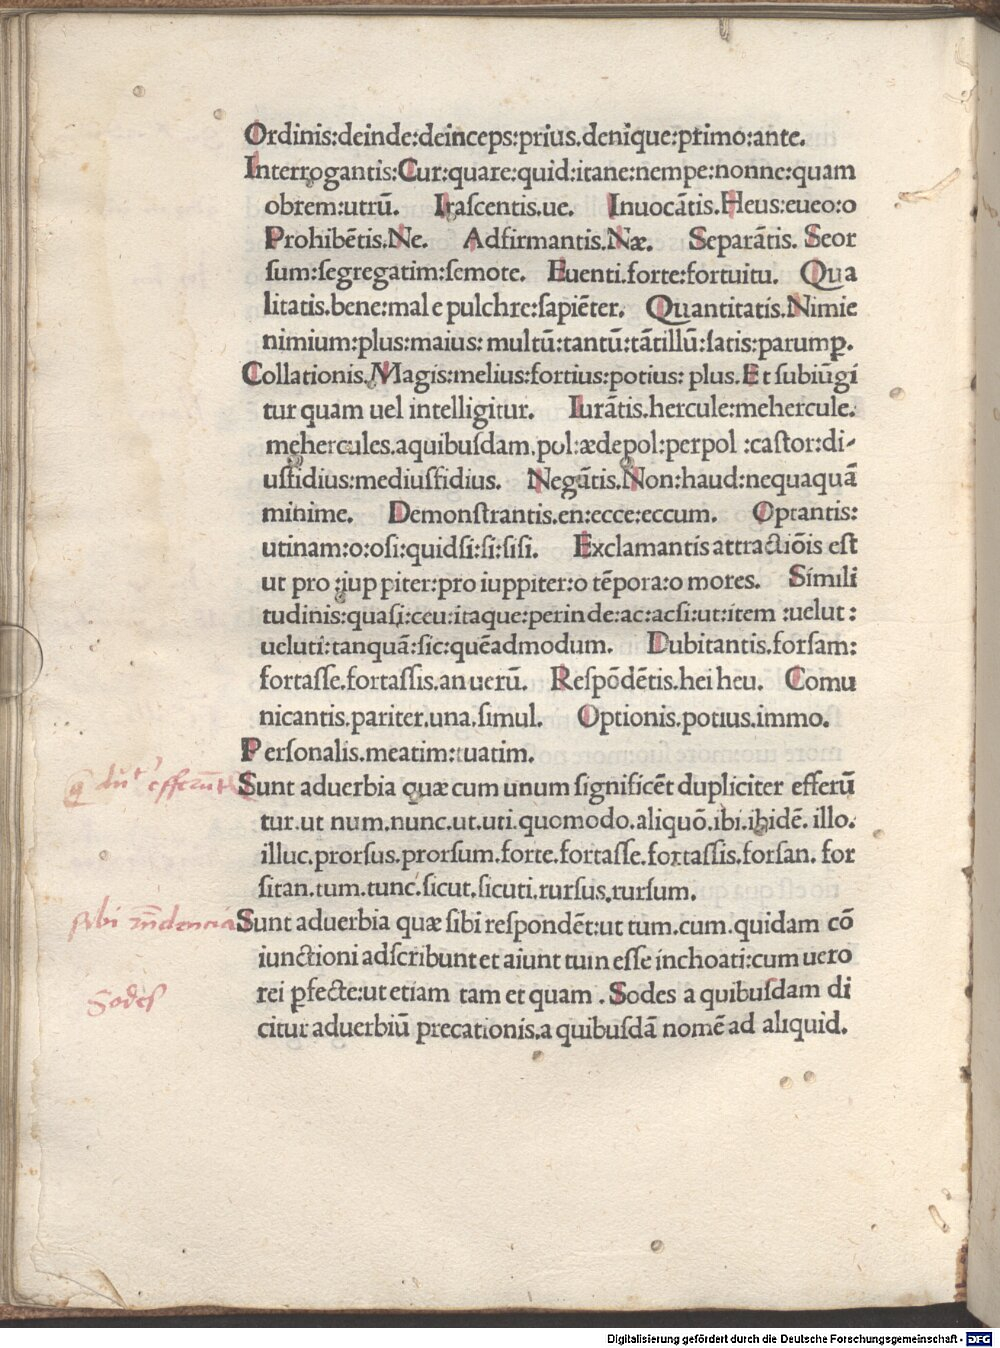 Ordinis:deinde:deinceps:prius.denique:primo:ante.
Interrogantis:Cur:quare:quid:itane:nempe:nonne:quam
obrem:utrū. Iraſcentis.ue. Inuocātis.Heus:eueo:o
Prohibētis.Ne. Adfirmantis.Næ. Separātis. Seor
ſum:ſegregatim:ſemote. Euenti.forte:fortuitu. Qua
litatis.bene:male pulchre:ſapiēter. Quantitatis.Nimie
nimium:plus:maius: multū:tantū:tātillū:ſatis:parumꝑ.
Collationis.Magis:melius:fortius:potius: plus.Et ſubiūgi
tur quam uel intelligitur. Iurātis.hercule:mehercule.
mehercules.aquibuſdam.pol:ædepol:perpol :caſtor:di-
uſfidius:mediuſfidius. Negātis.Non:haud:nequaquā
minime. Demonſtrantis.en:ecce:eccum. Optantis:
utinam:o:oſi:quidſi:ſi:ſiſi. Exclamantis attractiōis eſt
ut pro :iup piter:pro iuppiter:o tēpora:o mores. Simili
tudinis:quaſi:ceu:itaque:perinde:ac:acſi:ut:item :uelut :
ueluti:tanquā:ſic:quēadmodum. Dubitantis.forſam:
fortaſſe.fortaſſis.an uerū. Reſpōdētis.hei heu. Comu
nicantis.pariter.una.ſimul. Optionis.potius.immo.
Perſonalis.meatim:tuatim.
Sunt aduerbia quæ cum unum ſignificēt dupliciter efferū
tur.ut num.nunc.ut.uti.quomodo.aliquō.ibi.ibidē. illo.
illuc.prorſus.prorſum.forte.fortaſſe.fortaſſis.forſan. for
ſitan.tum.tunc.ſicut.ſicuti.rurſus.rurſum.
ſibi
Sunt aduerbia quæ ſibi reſpondēt:ut tum.cum.quidam cō
iunctioni adſcribunt et aiunt tum eſſe inchoati:cum uero
rei ꝑfecte:ut etiam tam et quam . Sodes a quibuſdam di
Sodes
citur aduerbiū precationis.a quibuſdā nomē ad aliquid.
Digitalisierung gefördert durch die Deutsche Forschungsgemeinschaft - DFG